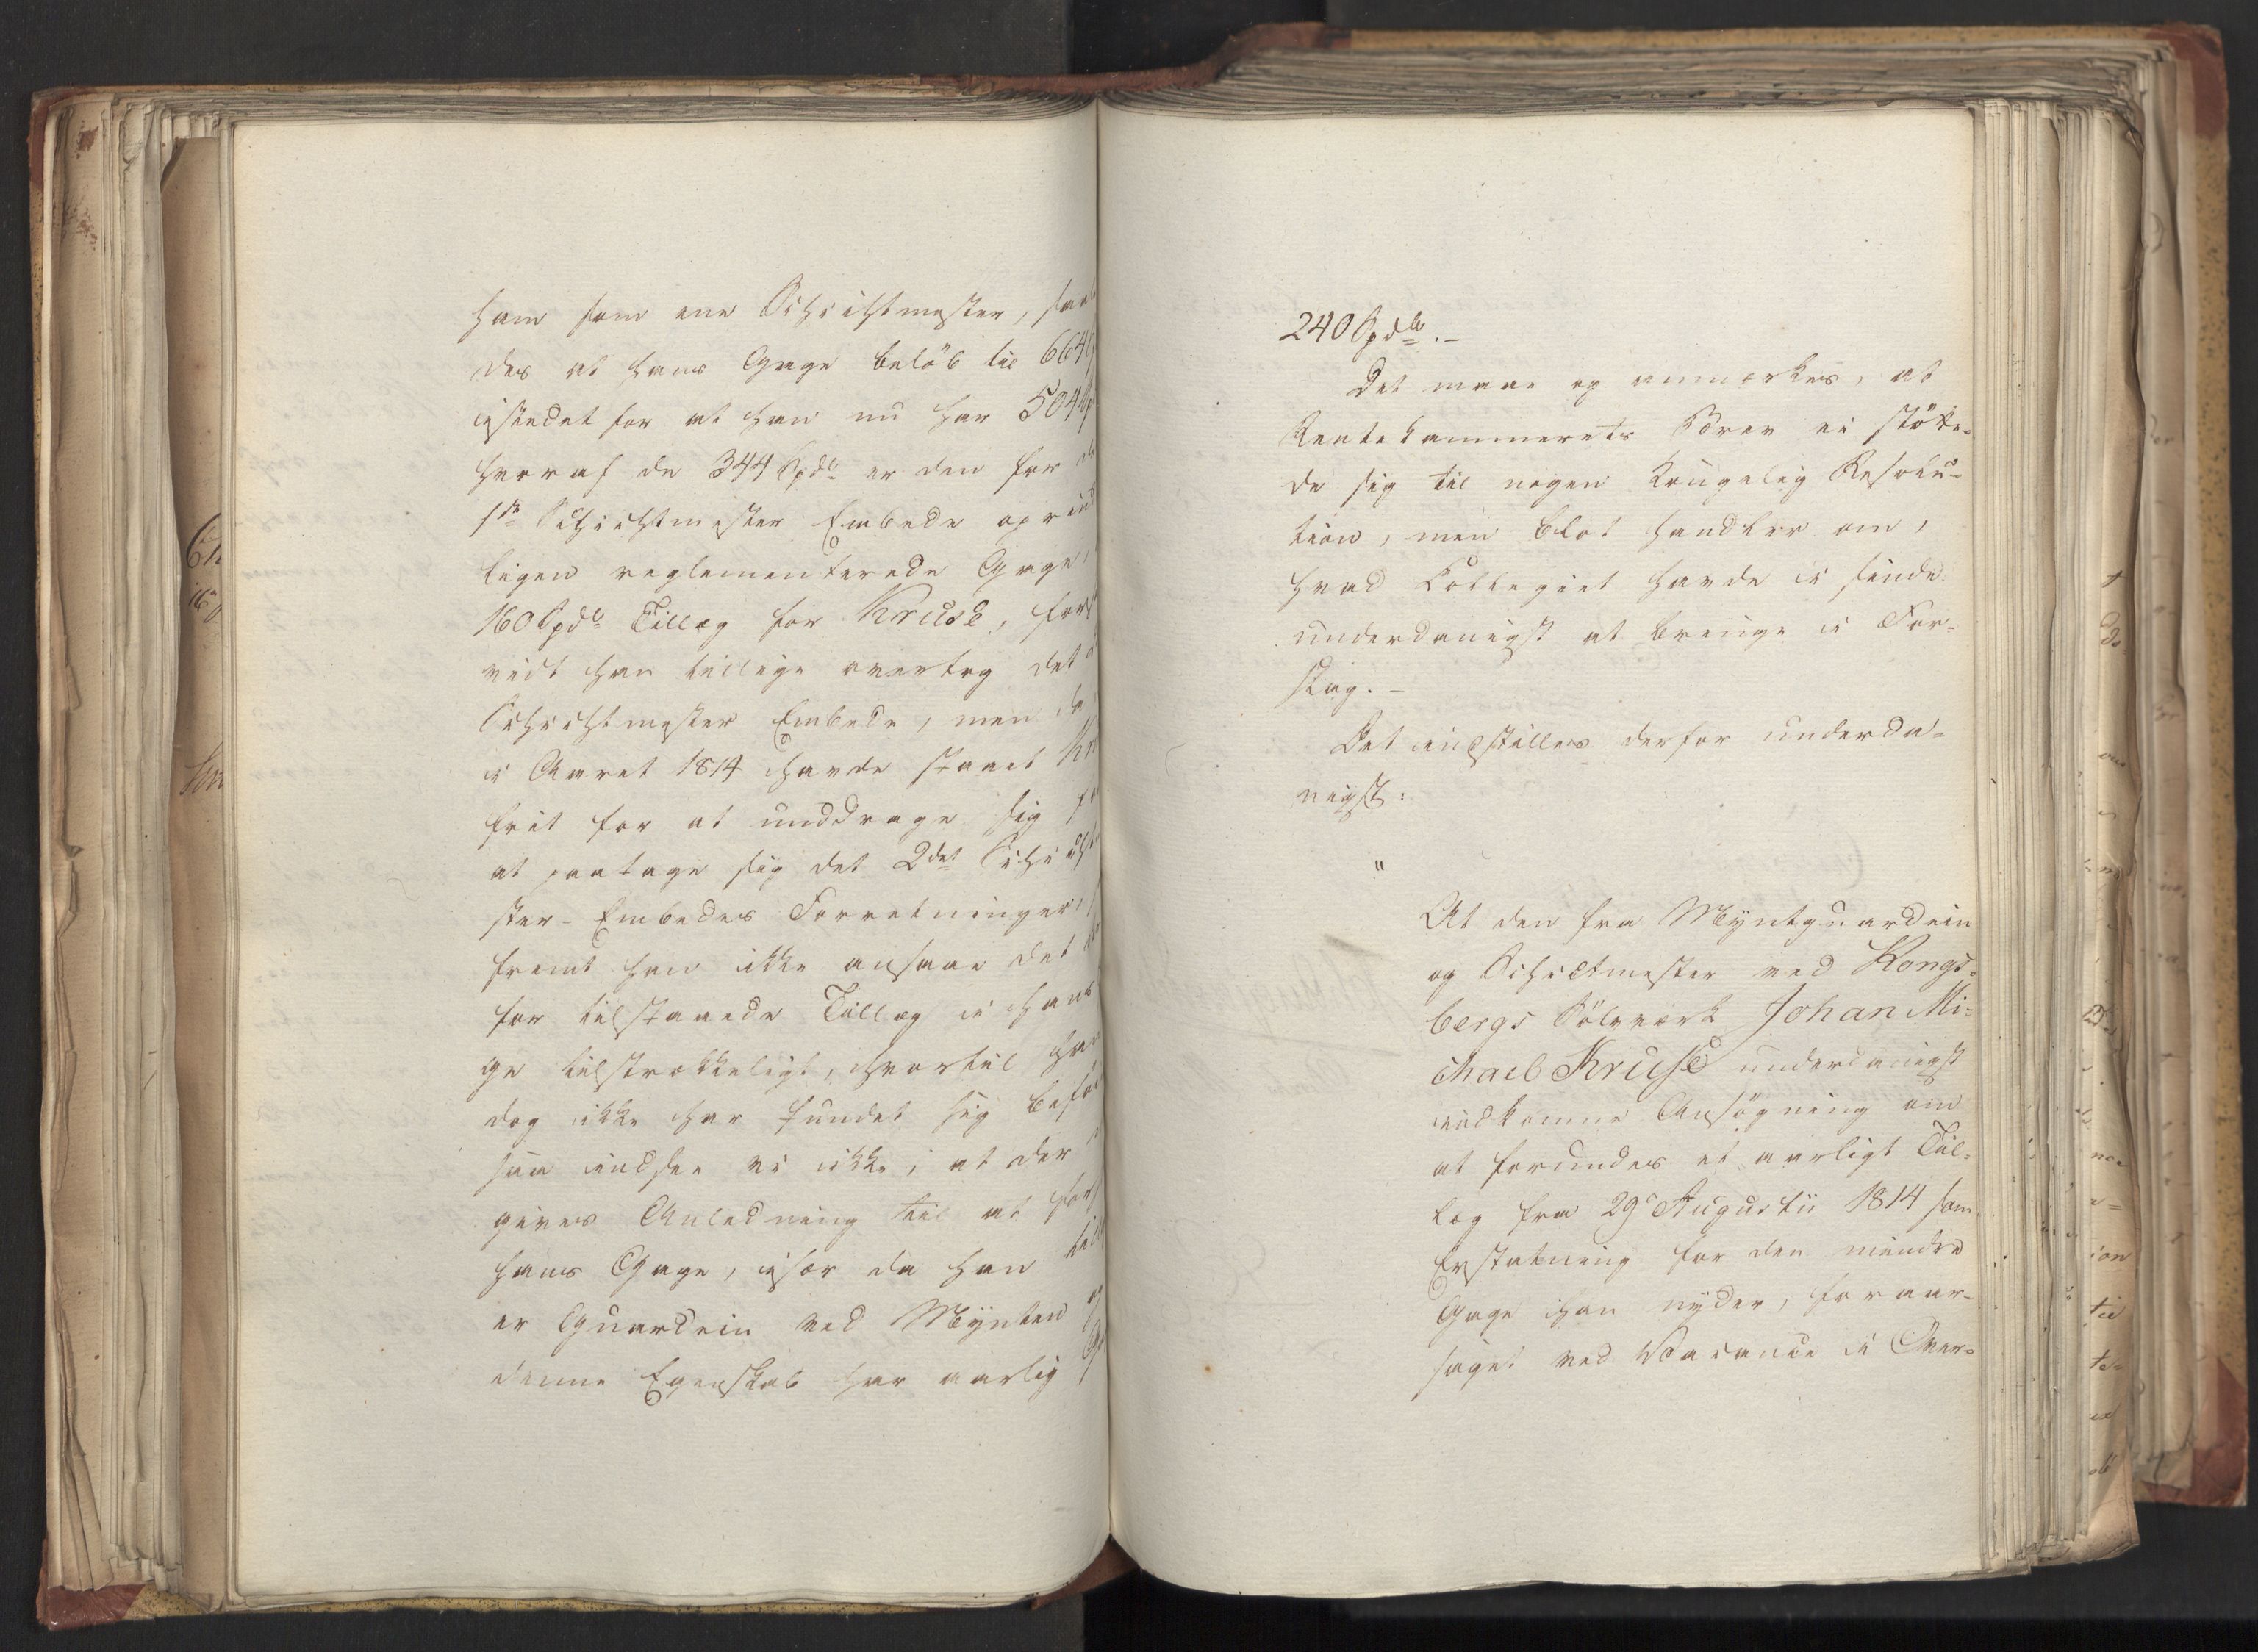 ham som ene Schichtmester, saale
des at hans Gage beløb til 664
istedet for at han nu har 504
hvoraf de 344 Spdlr er den for de
1ste Schichtmester Embede oprind
ligen reglementerede Gage,
160 Spdlr Tillæg for Kruse, for
vidt han tillige overtog det
Schichtmester Embede, men da
i Aaret 1814 havde staaet Kr
frit for at unddrage sig fr
at paatage sig det 2det Schicht
ster-Embedes Forretninger,
fremt han ikke ansaae det
for tilstaaede Tillæg i hans
ge tilstrækkeligt, hvortil han
dog ikke har fundet sig beføi
saa indsee vi ikke, at der
gives Anledning til at for
hans Gage, især da han till
er Guardein ved Mynten og
denne Egenskab har aarlig
240 Spdlr.-
Det maae og anmærkes, at
Rentekammerets Brev ei støtte-
de sig til nogen Kongelig Resolu-
tion, men blot handler om,
hvad Collegiet havde i sinde
underdanigst at bringe i For-
slag.-
Det indstilles derfor underda-
nigst:
"
At den fra Myntguardein
og Schictmester ved Kongs-
bergs Sølvværk Johan Mi-
chael Kruse underdanigst
indkomne Ansøgning om
at forundes et aarligt Til-
læg fra 29 Augustii 1814 som
Erstatning for den mindre
Gage han nyder, foraar-
saget ved Vacance i Over-